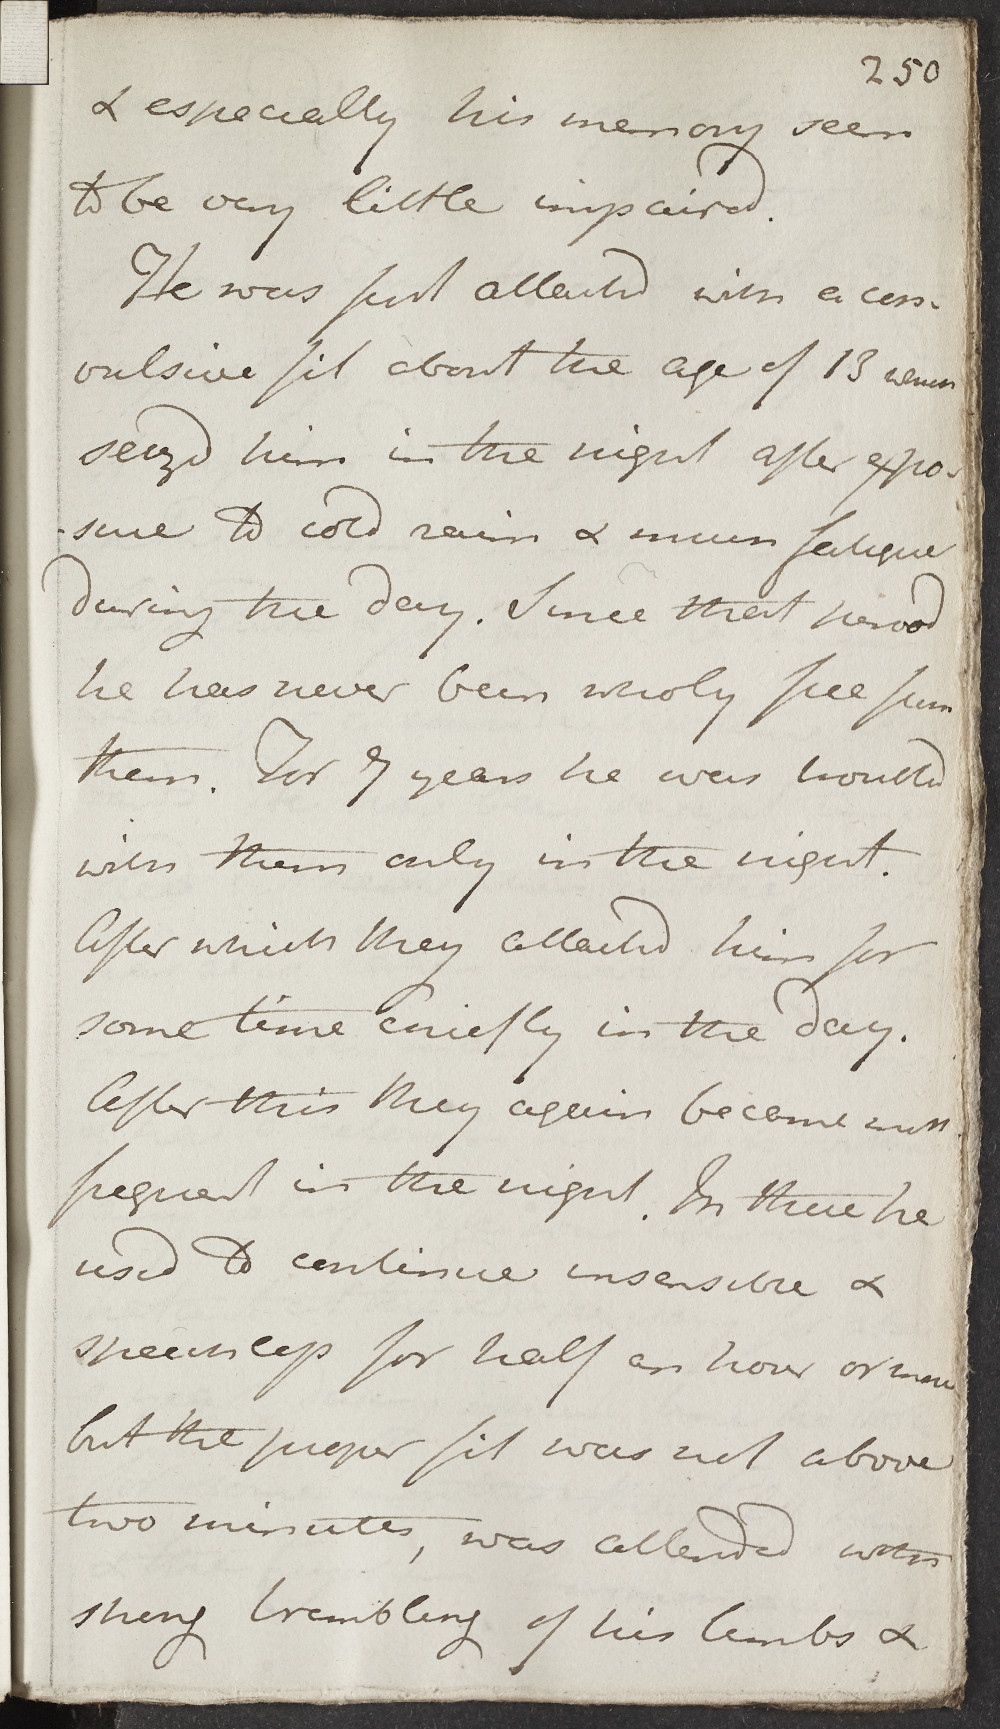 250
& especially his memory seem
to be very little impaired.
He was first attack'd with a con-
vulsive fit about the age of 13 which
seizd him in the night after expo-
-sure to cold rain & much fatigue
during the day. Since that period
he has never been wholy free from
them. For 7 years he was troubld
with them only in the night.
After which they attackd him for
some time chiefly in the day.
After this they again became most
frequent in the night. In these he
used to continue insensible &
speechless for half an hour or more
but the proper fit was not above
two minutes, was attended with
strong trembling of his limbs &